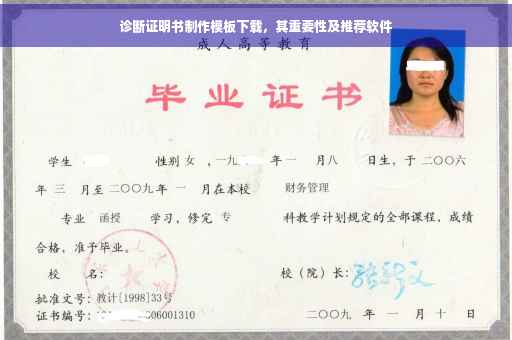 诊断证明书制作模板下载，其重要性及推荐软件
成人高等教育
毕业证书
学生 性别 女 ，一九 年 一 月 八 日生，于 二〇〇六
年 三 月至 二〇〇九 年 一 月在本校 财务管理
专业 函授 学习，修完 专 科教学计划规定的全部课程，成绩
合格，准予毕业。
校 名： 校（院）长：
批准文号：教计[1998]33号
证书编号： 06001310 二〇〇九 年 一 月 十 日